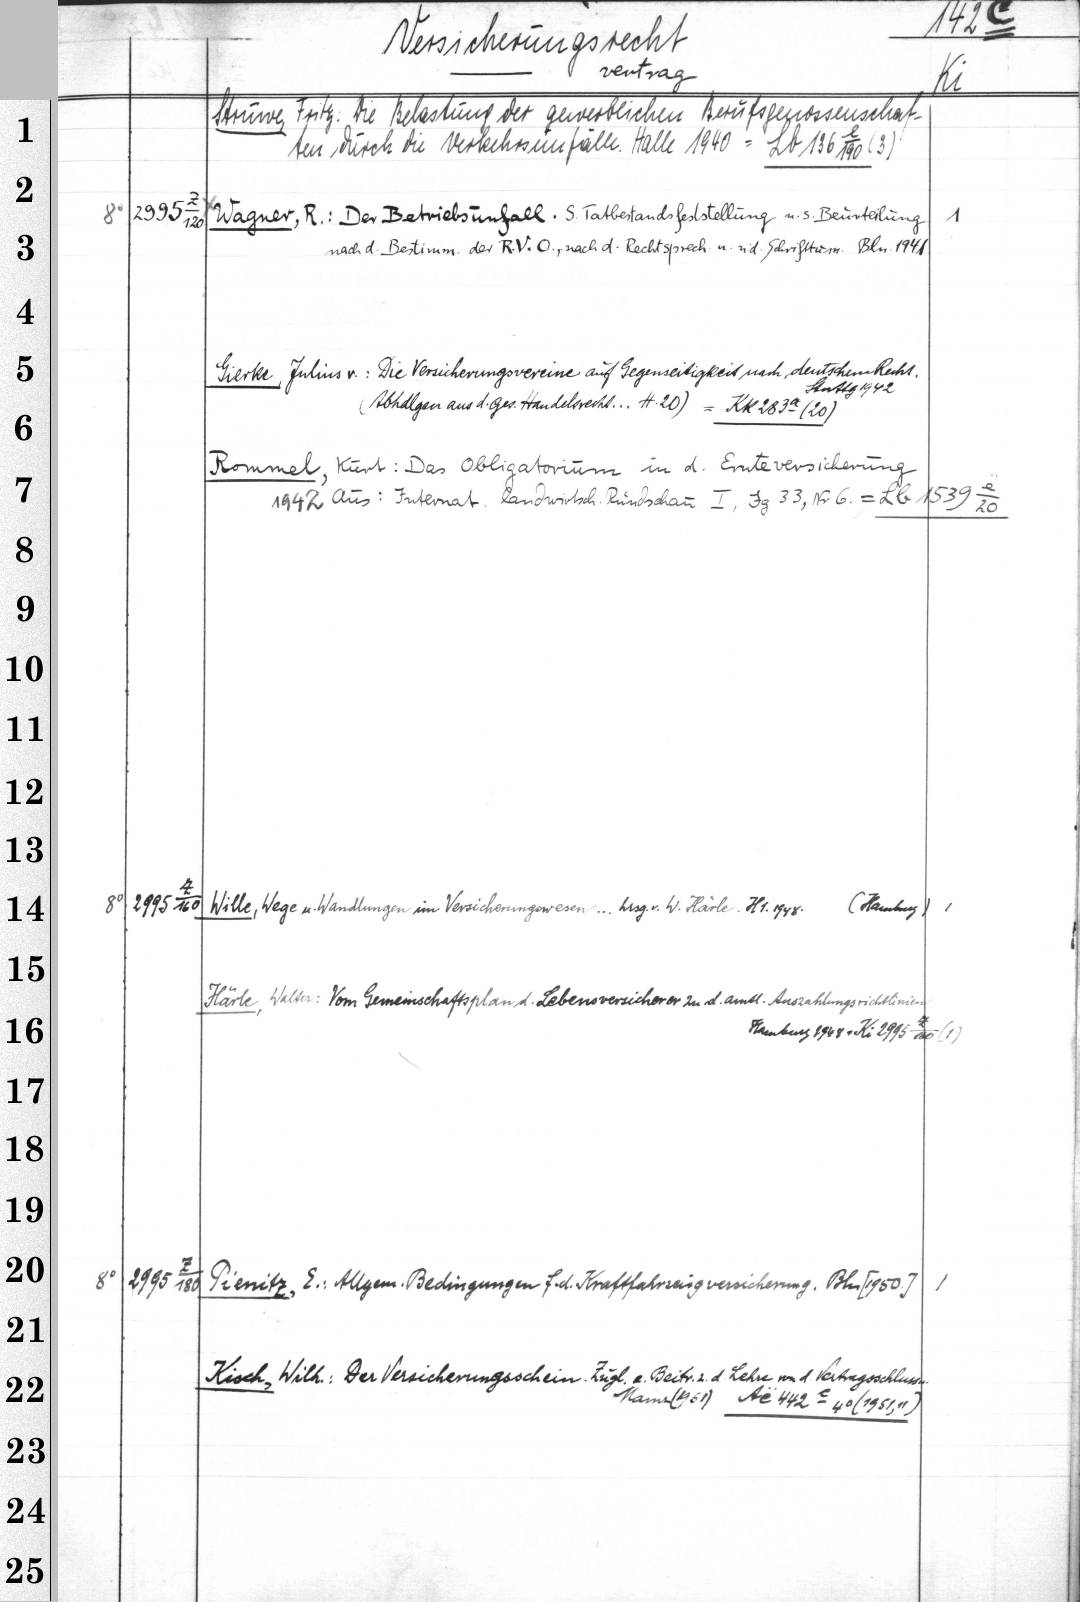 142 c
Versicherungsrecht
vertrag
Ki
1
Struwe, Fritz: Die Belastung der gewerblichen Berufsgenossenschaf-
ten durch die Verkehrsunfälle. Halle 1940 = Lb 136 e/190 (3)
2
8° 2995 z/120 Wagner, R.: Der Betriebsunfall. S. Tatbestandsfeststellung u. s. Beurteilung 1
3
nach d. Bestimm. der R.V.O., nach d. Rechtsprech. u. n. d. Schrifttum. Bln. 1941
4
5
Gierke, Julius v.: Die Versicherungsvereine auf Gegenseitigkeit nach deutschem Recht.
Stuttg 1942
(Abhdlgen aus d. ges. Handelsrecht... H. 20) = Kk 283 a (20)
6
Rommel, Kurt: Das Obligatorium in d. Ernteversicherung
7
1942 Aus: Internat. landwirtsch. Rundschau I, Jg 33, Nr 6. = Lb 1539 e/20
8
9
10
11
12
13
14
8° 2995 z/160 Wille, Wege u. Wandlungen im Versicherungswesen ... hrsg. v. W. Härle. H 1. 1948. (Hamburg) 1
15
Härle, Walter: Vom Gemeinschaftsplan d. Lebensversicherer zu d. amtl. Auszahlungsrichtlinien
16
Hamburg 1948 = Ki 2995 z/160 (1)
17
18
19
20
8° 2995 z/180 Pienitz, E.: Allgem. Bedingungen f. d. Kraftfahrzeugversicherung. Bln [1950.] 1
21
22
Kisch, Wilh.: Der Versicherungsschein. Zugl. e. Beitr. z. d Lehre von d Vertragsschluss
(1951) Aë 442 c 4° (1951,11)
23
24
25